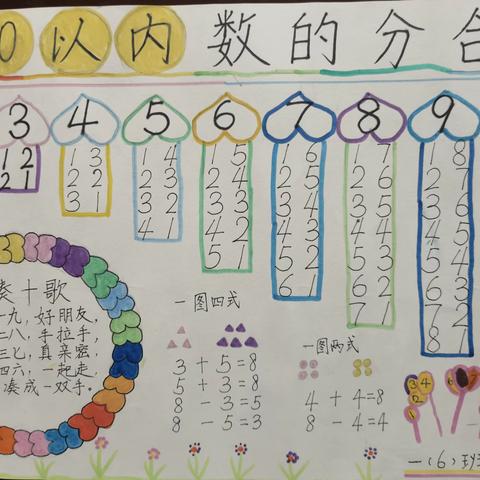 0以内数的分合
3 4 5 6 7 8 9
1 2
2 1
1 3
2 2
3 1
1 4
2 3
3 2
4 1
1 5
2 4
3 3
4 2
5 1
1 6
2 5
3 4
4 3
5 2
6 1
1 7
2 6
3 5
4 4
5 3
6 2
7 1
1 8
2 7
3 6
4 5
5 4
6 3
7 2
8 1
凑十歌
一九，好朋友，
二八，手拉手
三七，真亲密，
四六，一起走，
凑成一双手。
一图四式
3+5=8
5+3=8
8-3=5
8-5=3
一图两式
4+4=8
8-4=4
3 4
2
1
6 7
一(6)班